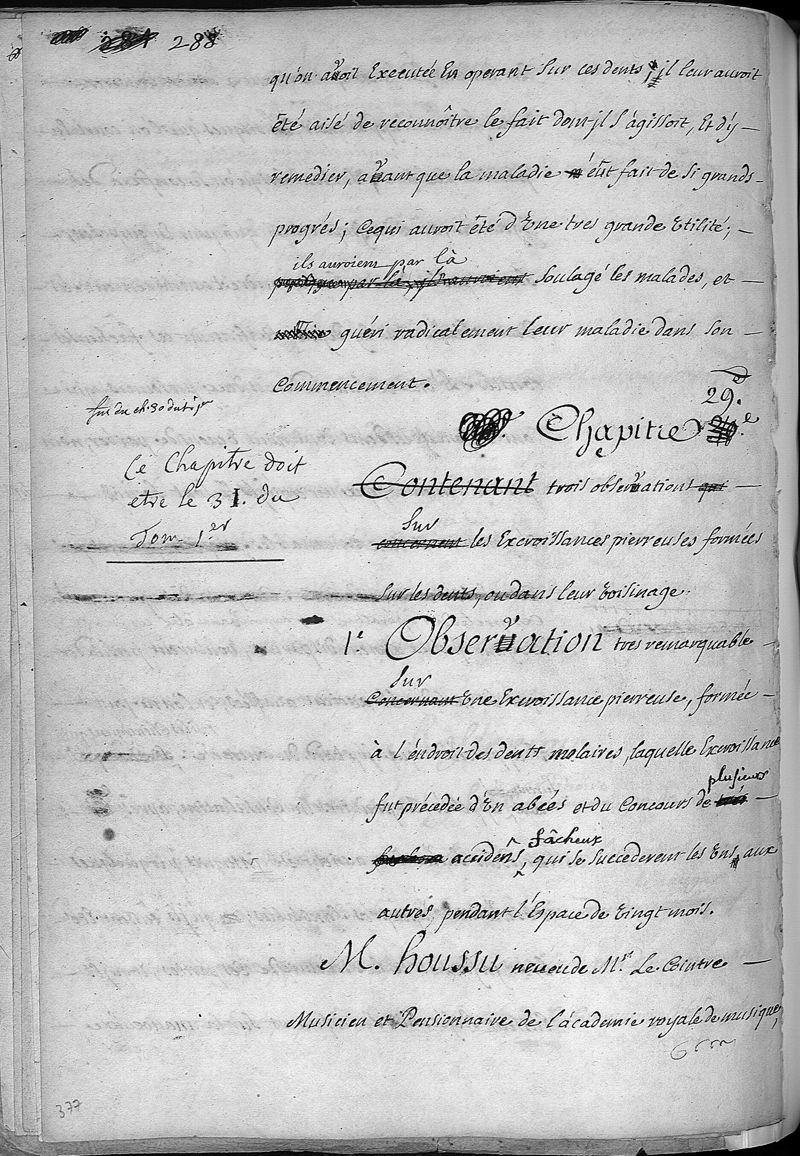 288
qu'on avoit Executée En operant Sur ces dents; il leur auroit
êté aisé de reconnoître le fait dont jl s'âgissoit, Et d'y —
remedier, avant que la maladie eût fait de si grands-
progrés; Ce qui auroit êté d'Une tres grande Utilité; —
ils auroient par là
soulagé les malades, et —
guéri radicalement leur maladie dans son —
Commencement.
29.
Chapitre
Ce Chapitre doit
etre le 31. du
Tom. 1.er
Contenant trois observations qui —
Sur
concernent les Excroissances pierreuses formées
Sur les dents, ou dans leur voisinage.
1e Observation tres remarquable —
Sur
Concernant Une Excroissance pierreuse, formée —
à l'éndroit des dents molaires, laquelle Excroissance
plusieurs
fut précedée d'Un abcés et du Concours de —
fâcheux
accidens, qui se Succederent les Uns, aux
autres pendant l'Espace de vingt mois.
M. houssu neveu de Mr. Le Cointre —
Musicien et Pensionnaire de l'âcademie royale de musique,
377